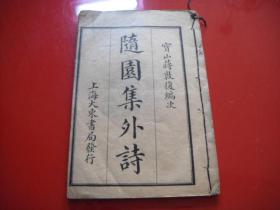 寶山蔣敦復編次
隨園集外詩
上海大東書局發行